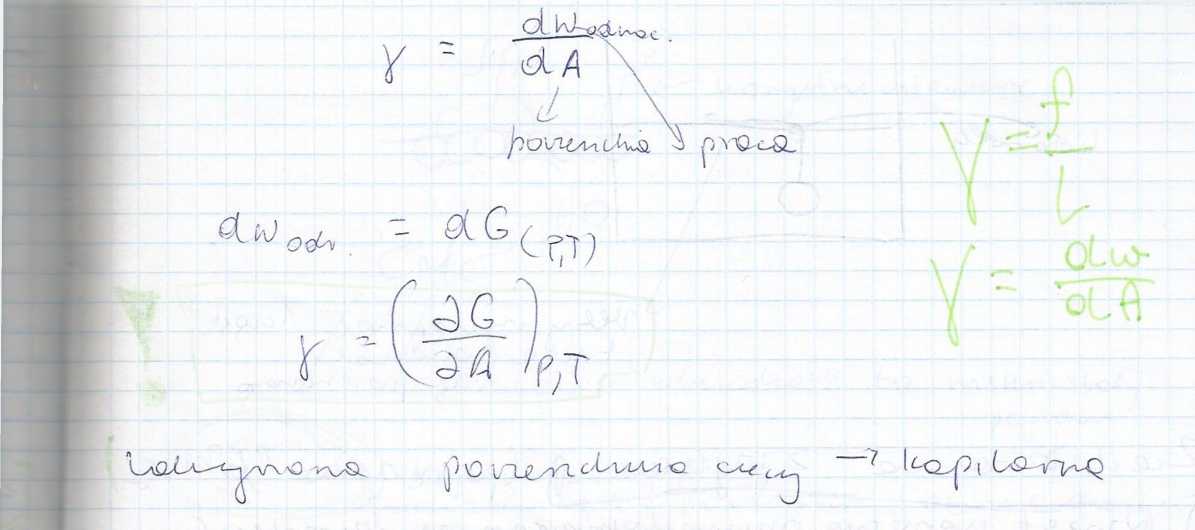 γ = dw odwrac. / dA
powierzchnia praca
γ = f / L
dw odw. = dG (P,T)
γ = dw / dA
γ = (∂G / ∂A) P,T
!
zakrzywiona powierzchnia cieczy → kapilarna